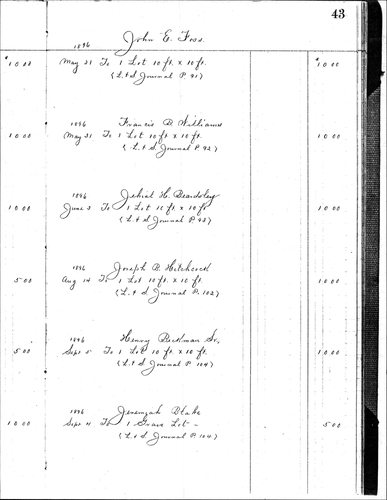 43
John E. Foss.
1896
$10.00 May 21 To 1 Lot 10 ft. x 10 ft. $10.00
(L & S Journal P. 91)
1896 Francis B. Williams
10.00 May 31 To 1 Lot 10 ft x 10 ft. 10.00
(L. & S. Journal P. 92)
1896 H. Beardsley
10.00 June 3 To 1 Lot 10 ft. x 10 ft. 10.00
(L & S Journal P. 93)
1896 Joseph B. Hitchcock
5.00 Aug 14 To 1 Lot 10 ft. x 10 ft. 10.00
(L. & S. Journal P. 102)
1896 Henry Beekman Sr.
5.00 Sept 5 To 1 Lot 10 ft. x 10 ft. 10.00
(L & S Journal P. 104)
1896 Jeremiah Blake
10.00 Sept 11 To 1 Grave Lot - 5.00
(L & S Journal P. 104)